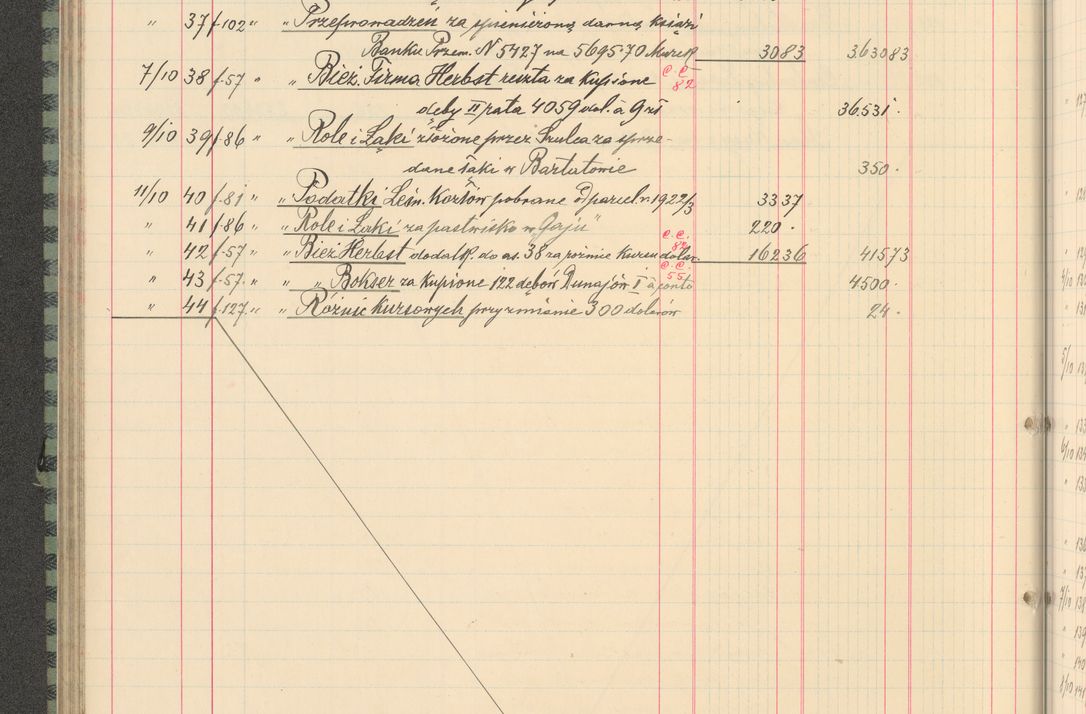 " 37 f-102 " Przeprowadzeń za spieniężoną dawną książ
Banku Przem. N 5427 na 5695·70 3083 363083
7/10 38 f-57 " " Bież. Firma Herbst reszta za kupione C.C. 82
dęby II rata 4059 dol. à 9 zł 36.531·
9/10 39 f-86 " " Role i Łąki złożone przez Szulca za sprze-
dane łąki w Bartatowie 350·
11/10 40 f-81 " " Podatki Leśn. Karłów pobrane parcel. r. 1922/3 3337
" 41 f-86 " " Role i Łąki za pastwisko w „Gaju" 220·
" 42 f-57 " " Bież Herbst dodatk. do as. 38 za różnice kursu dolar. C.C. 82 16236 41573
" 43 f-57· " " " Bokser za kupione 122 dębów Dunajów I à conto C.C. 55 4500·
" 44 f-127 " " Różnic kursowych przy zmianie 300 dolarów 24·
5/10
6/10
7/10
8/10